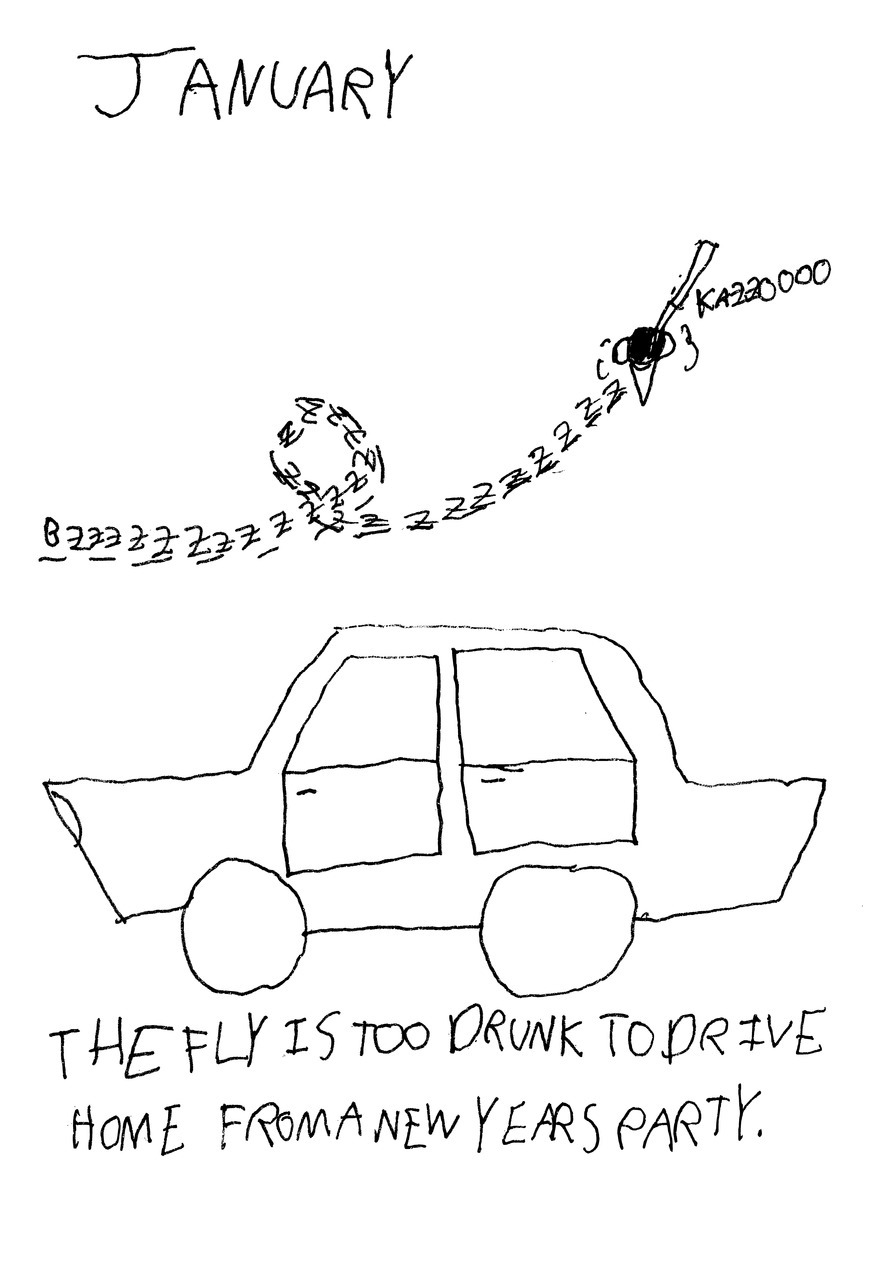 JANUARY
KAZZOOOO
BZZZZZZZZZZZZZZZZZZZZZZZZZZZZZZZZZZ
THE FLY IS TOO DRUNK TO DRIVE
HOME FROM A NEW YEARS PARTY.